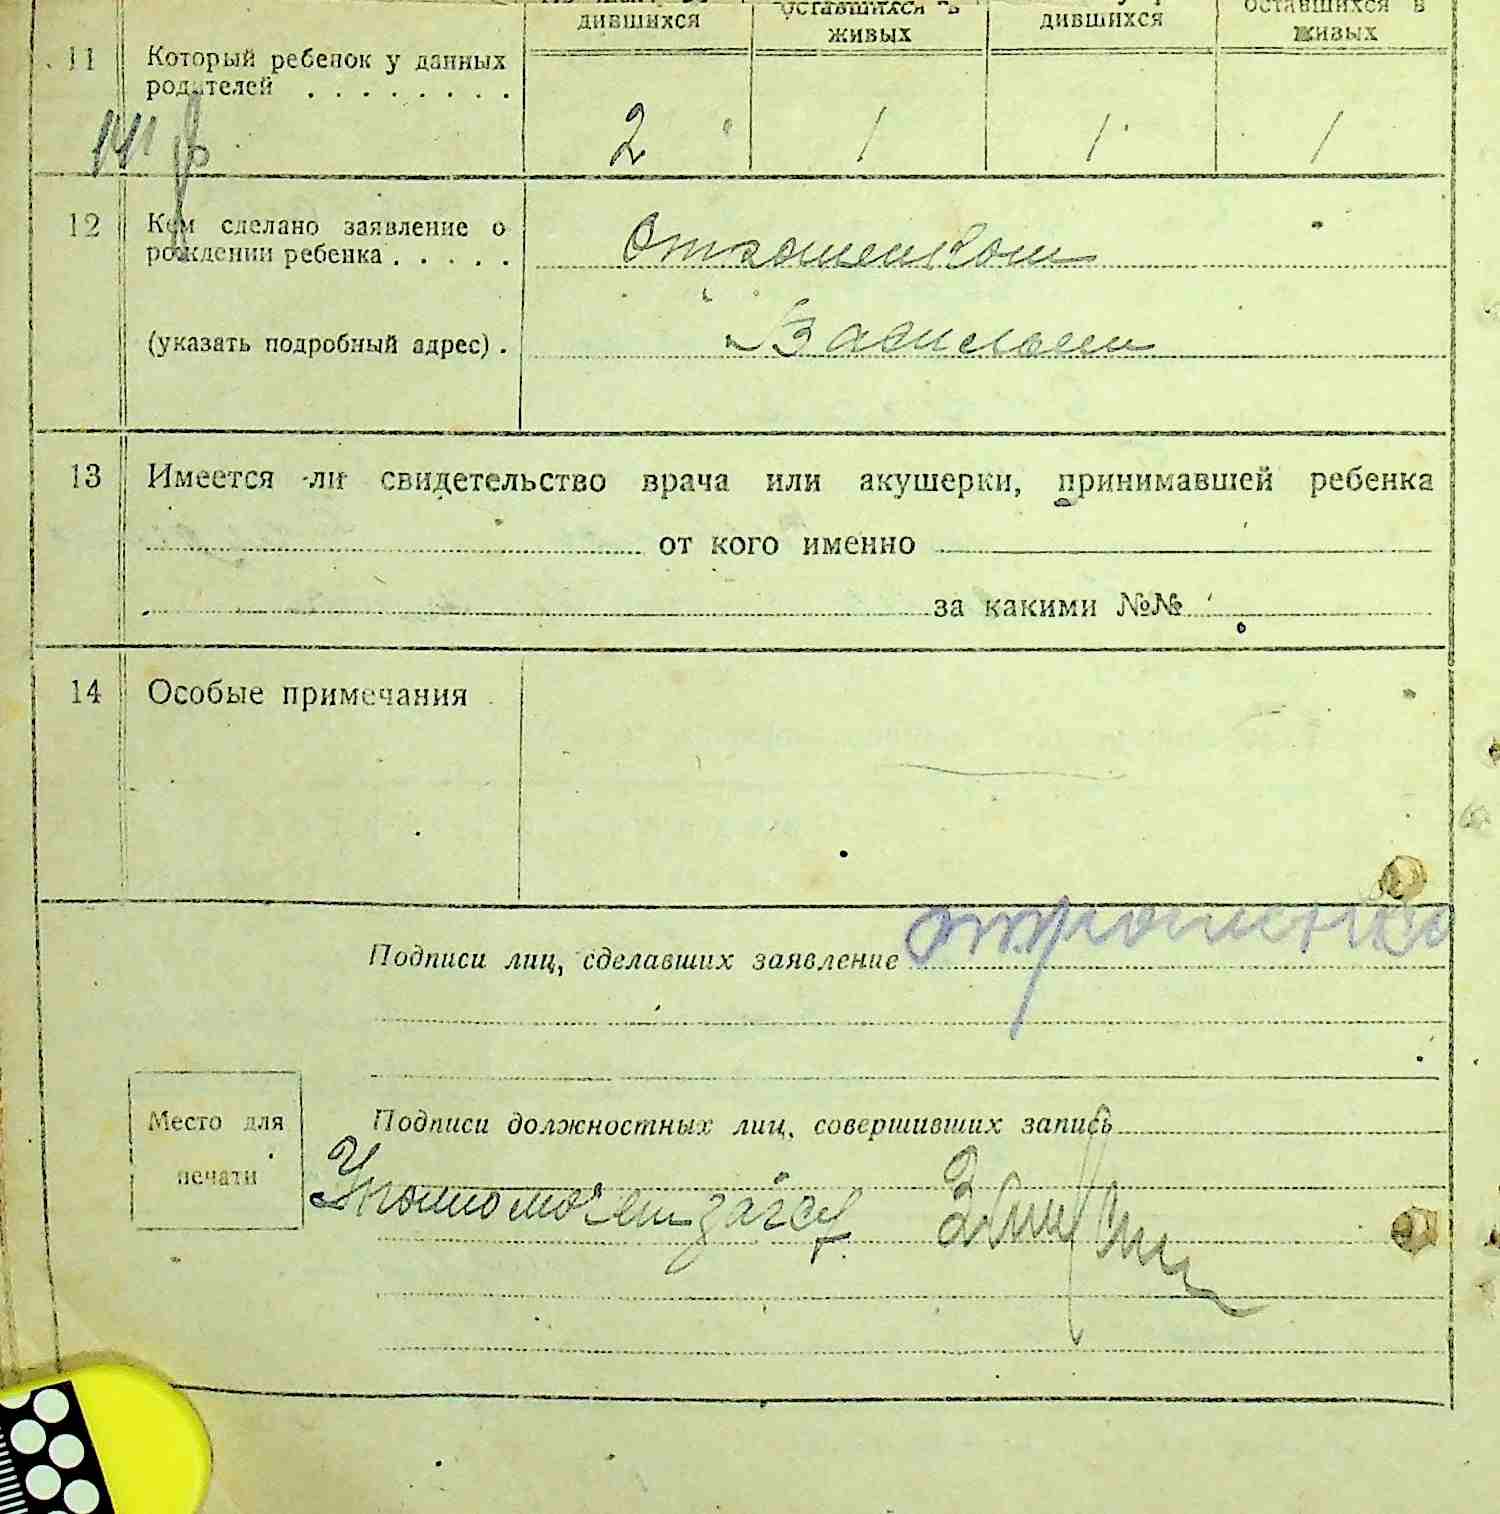 дившихся оставшихся в живых дившихся оставшихся в живых
11 Который ребенок у данных
родителей . . . . . . . .
2 1 1 1
12 Кем сделано заявление о
рождении ребенка . . . . .
(указать подробный адрес) .
13 Имеется ли свидетельство врача или акушерки, принимавшей ребенка
от кого именно
за какими №№
14 Особые примечания
Подписи лиц, сделавших заявление
Место для
печати
Подписи должностных лиц, совершивших запись